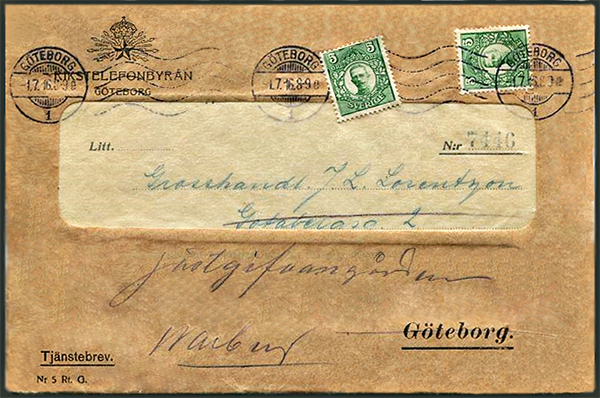 GÖTEBORG
1.7.16.8-9 e
1
RIKSTELEFONBYRÅN
GÖTEBORG
GÖTEBORG
1.7.16.8-9 e
1
5 5
SVERIGE
5 5
GÖTEBORG
1
Litt.
N:r 7446
Grosshandl. J. L. Lorentzon
Götabergsg. 2
Gästgifvaregården
Warberg
Göteborg.
Tjänstebrev.
Nr 5 Rt. G.